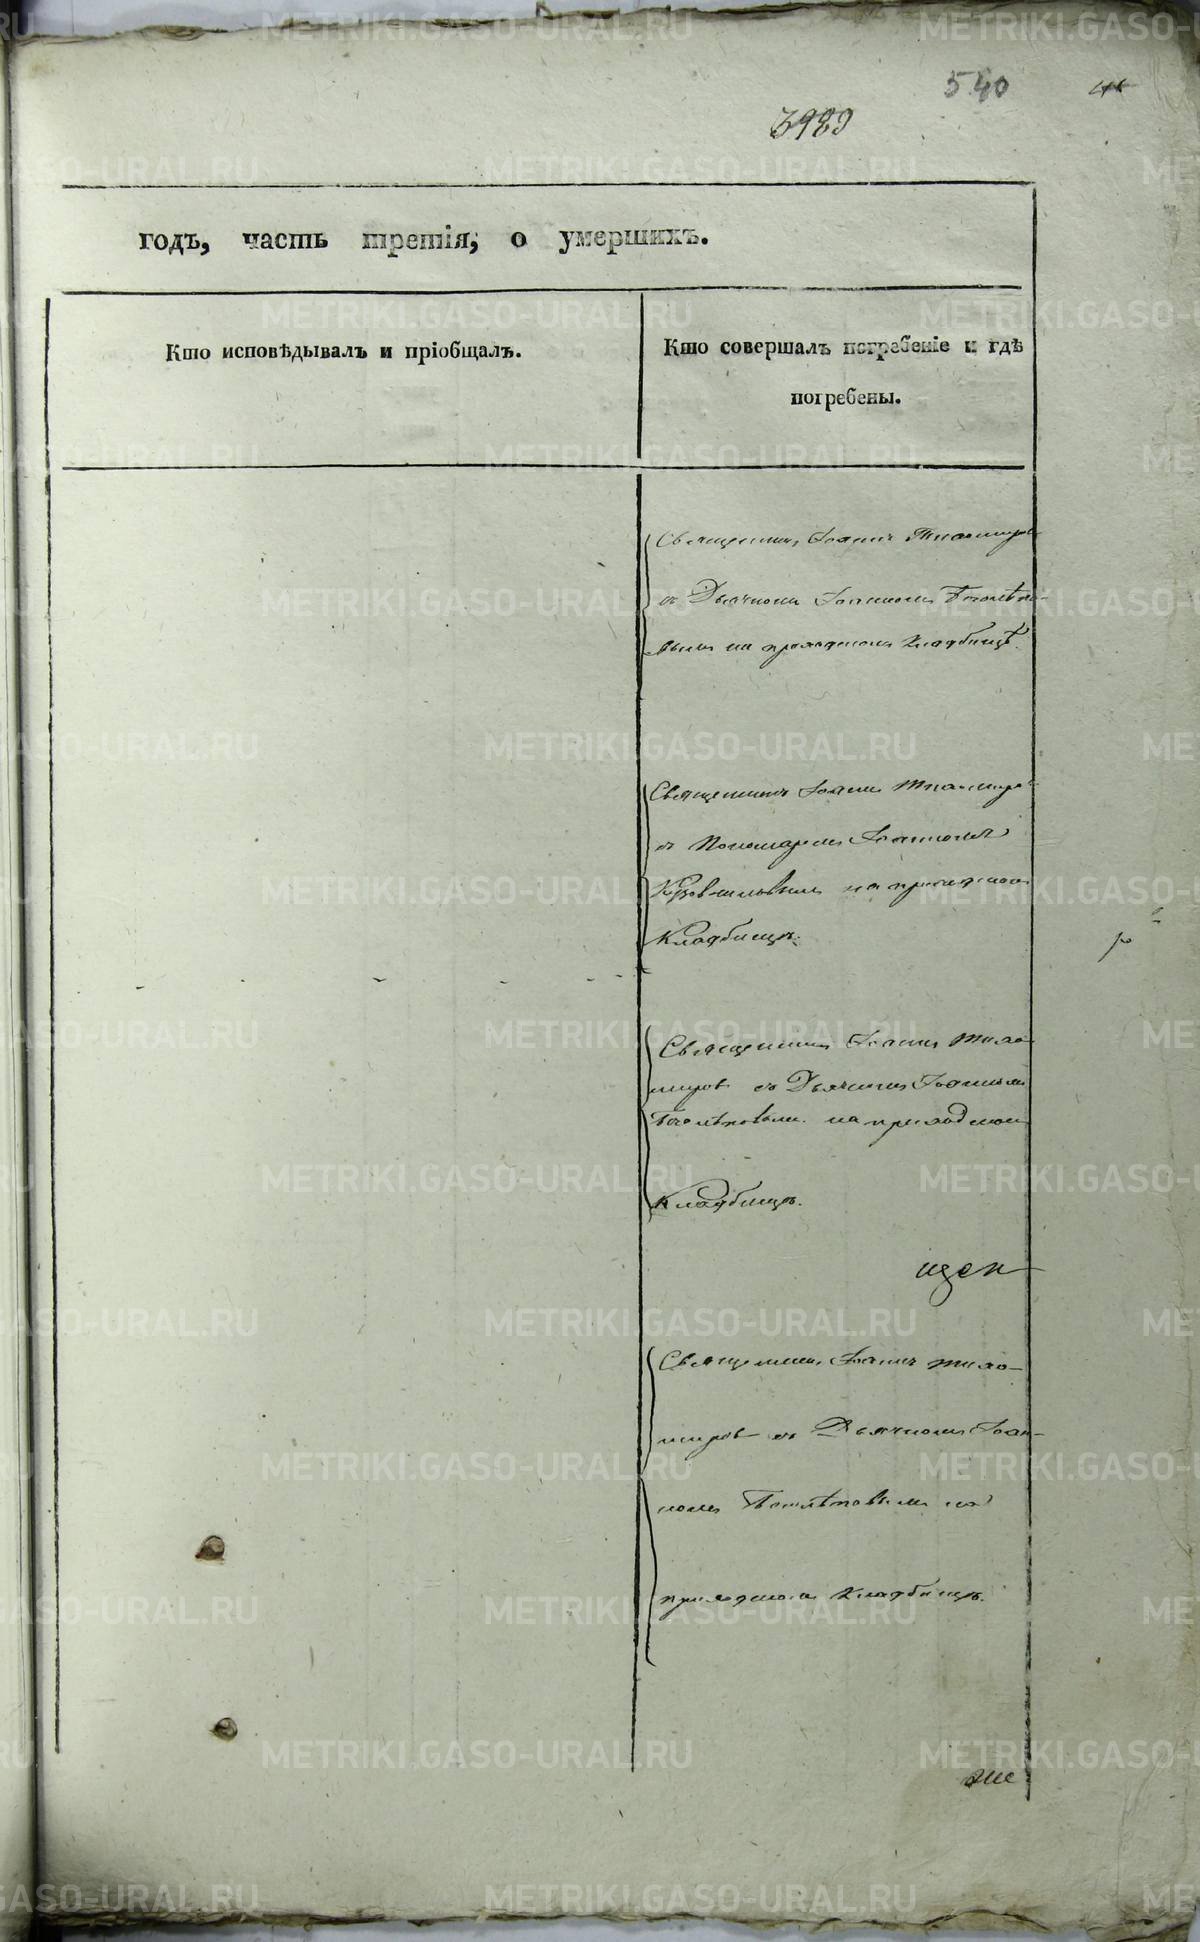 540
3989
годъ, часть третія, о умершихъ.
Кто исповѣдывалъ и пріобщалъ.
Кто совершалъ погребеніе и гдѣ
погребены.
Священникъ Іоаннъ Тихомиров
съ Дьячкомъ Іоанномъ
вымъ на приходскомъ Кладбищѣ.
Священникъ Іоаннъ Тихомиров
съ Пономаремъ Іоанномъ
на приходском
Кладбищѣ.
Священникъ Іоаннъ Тихо
мировъ съ Дьячкомъ Іоанномъ
на приходском
Кладбищѣ.
Священникъ Іоаннъ Тихо-
мировъ съ Дьячкомъ Іоан-
номъ на
приходскомъ Кладбищѣ.
METRIKI.GASO-URAL.RU